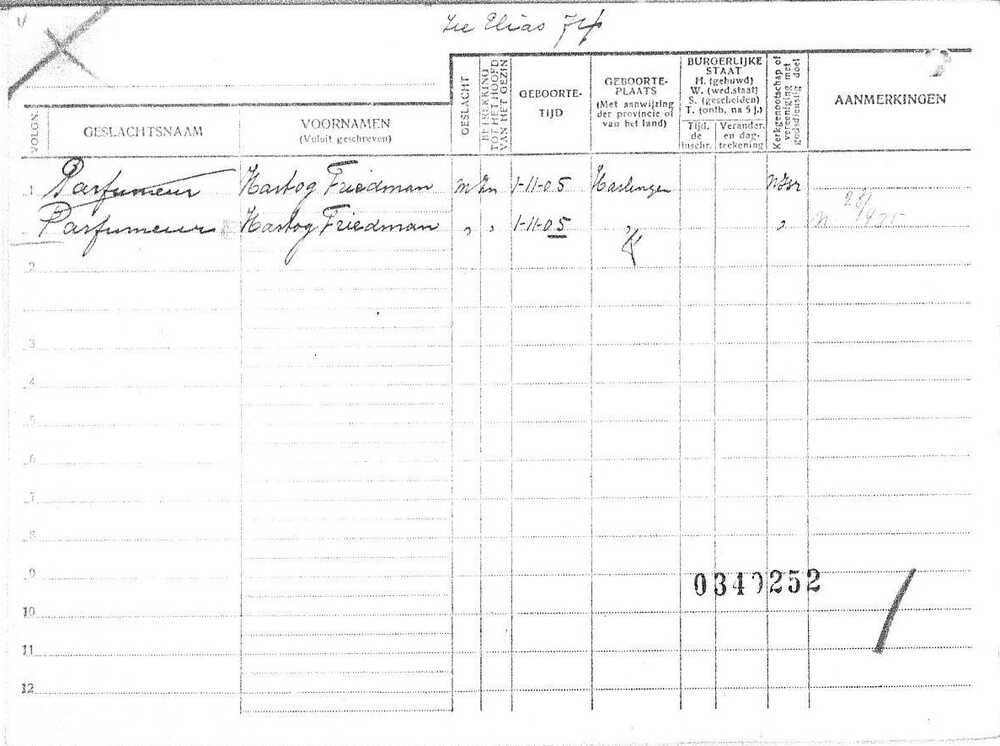 V
Zie Elias
VOLGN.
GESLACHTSNAAM
VOORNAMEN
(Voluit geschreven)
GESLACHT
BETREKKING
TOT HET HOOFD
VAN HET GEZIN
GEBOORTE-
TIJD
GEBOORTE-
PLAATS
(Met aanwijzing
der provincie of
van het land)
BURGERLIJKE
STAAT
H. (gehuwd)
W. (wed.staat)
S. (gescheiden)
T. (ontb. na 5 j.)
Tijd.
de
inschr.
Verander.
en dag-
teekening
Kerkgenootschap of
vereeniging met
godsdienstig doel
AANMERKINGEN
1 Parfumeur Hartog Friedman m Zn 1-11-05 Harlingen N Isr
Parfumeur Hartog Friedman " " 1-11-05 " "
2
3
4
5
6
7
8
9
0340252
10
11
12